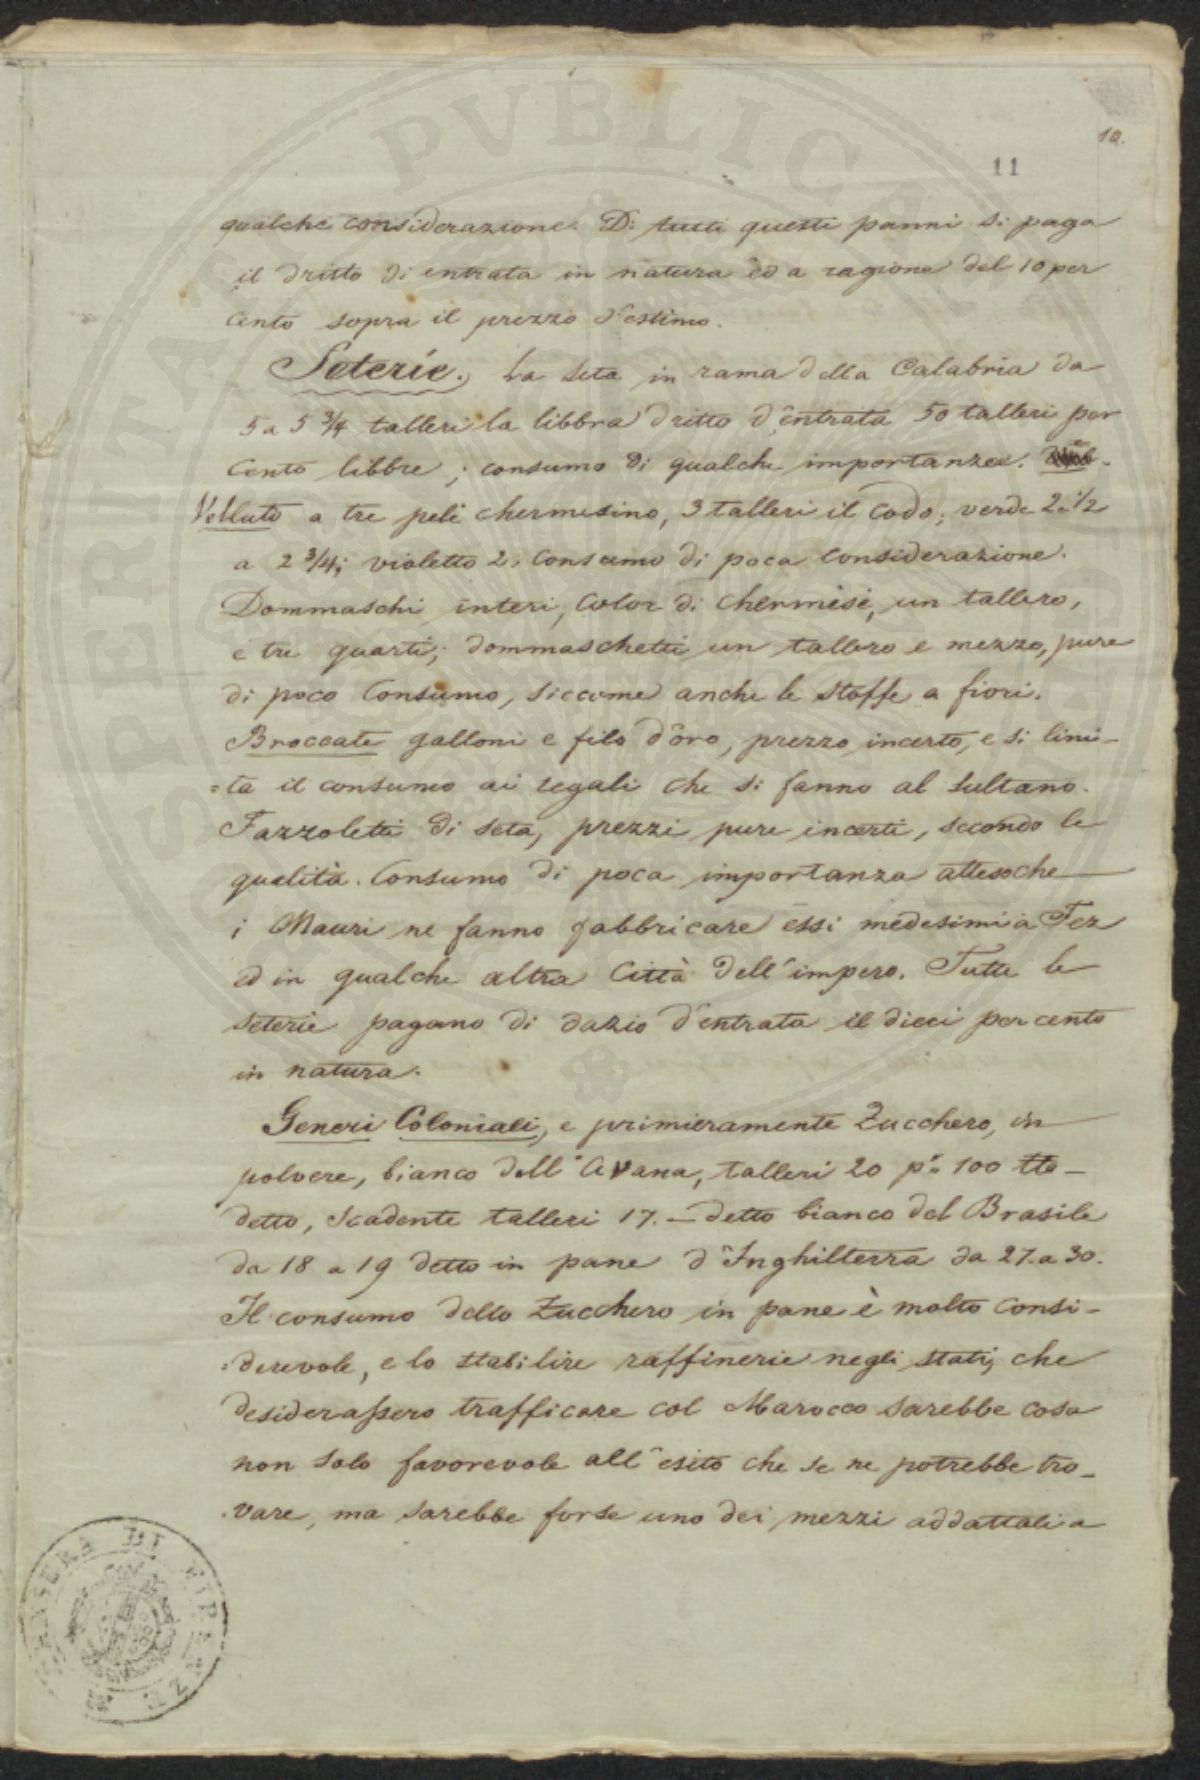 10.
11
qualche considerazione. Di tutti questi panni si paga
il dritto di entrata in natura ed a ragione del 10 per
Cento sopra il prezzo d'estimo.
Seterie. La seta in rama della Calabria da
5 a 5 3/4 talleri la libbra dritto d'entrata 50 talleri per
Cento libbre; consumo di qualche importanza.
Velluto a tre peli chermesino, 3 talleri il Codo; verde 2 1/2
a 2 3/4; violetto 2; Consumo di poca Considerazione.
Dommaschi interi, Color di Chermesi, un tallero,
e tre quarti; dommaschetti un tallero e mezzo, pure
di poco Consumo, siccome anche le stoffe a fiori.
Broccate galloni e filo d'oro, prezzo incerto, e si limi-
=ta il consumo ai regali che si fanno al Sultano.
Fazzoletti di seta, prezzi pure incerti, secondo le
qualità. Consumo di poca importanza attesoche
i Mauri ne fanno fabbricare essi medesimi a Fez
ed in qualche altra Città dell'impero. Tutte le
seterie pagano di dazio d'entrata il dieci per cento
in natura.
Generi Coloniali, e primieramente Zucchero, in
polvere, bianco dell'Avana, talleri 20 p.r 100 ttb-
detto, Scadente talleri 17. - detto bianco del Brasile
da 18 a 19 detto in pane d'Inghilterra da 27. a 30.
Il consumo dello Zucchero in pane è molto Consi-
=derevole, e lo stabilire raffinerie negli stati, che
desiderassero trafficare col Marocco sarebbe cosa
non solo favorevole all'esito che se ne potrebbe tro-
vare, ma sarebbe forse uno dei mezzi addattati a
PVBLICAE